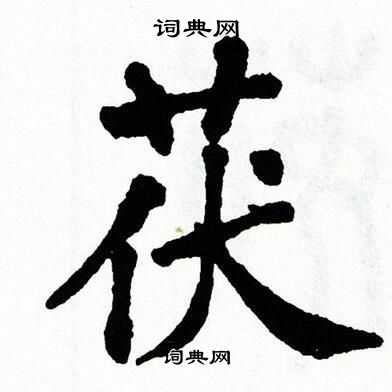 词典网
茯
词典网